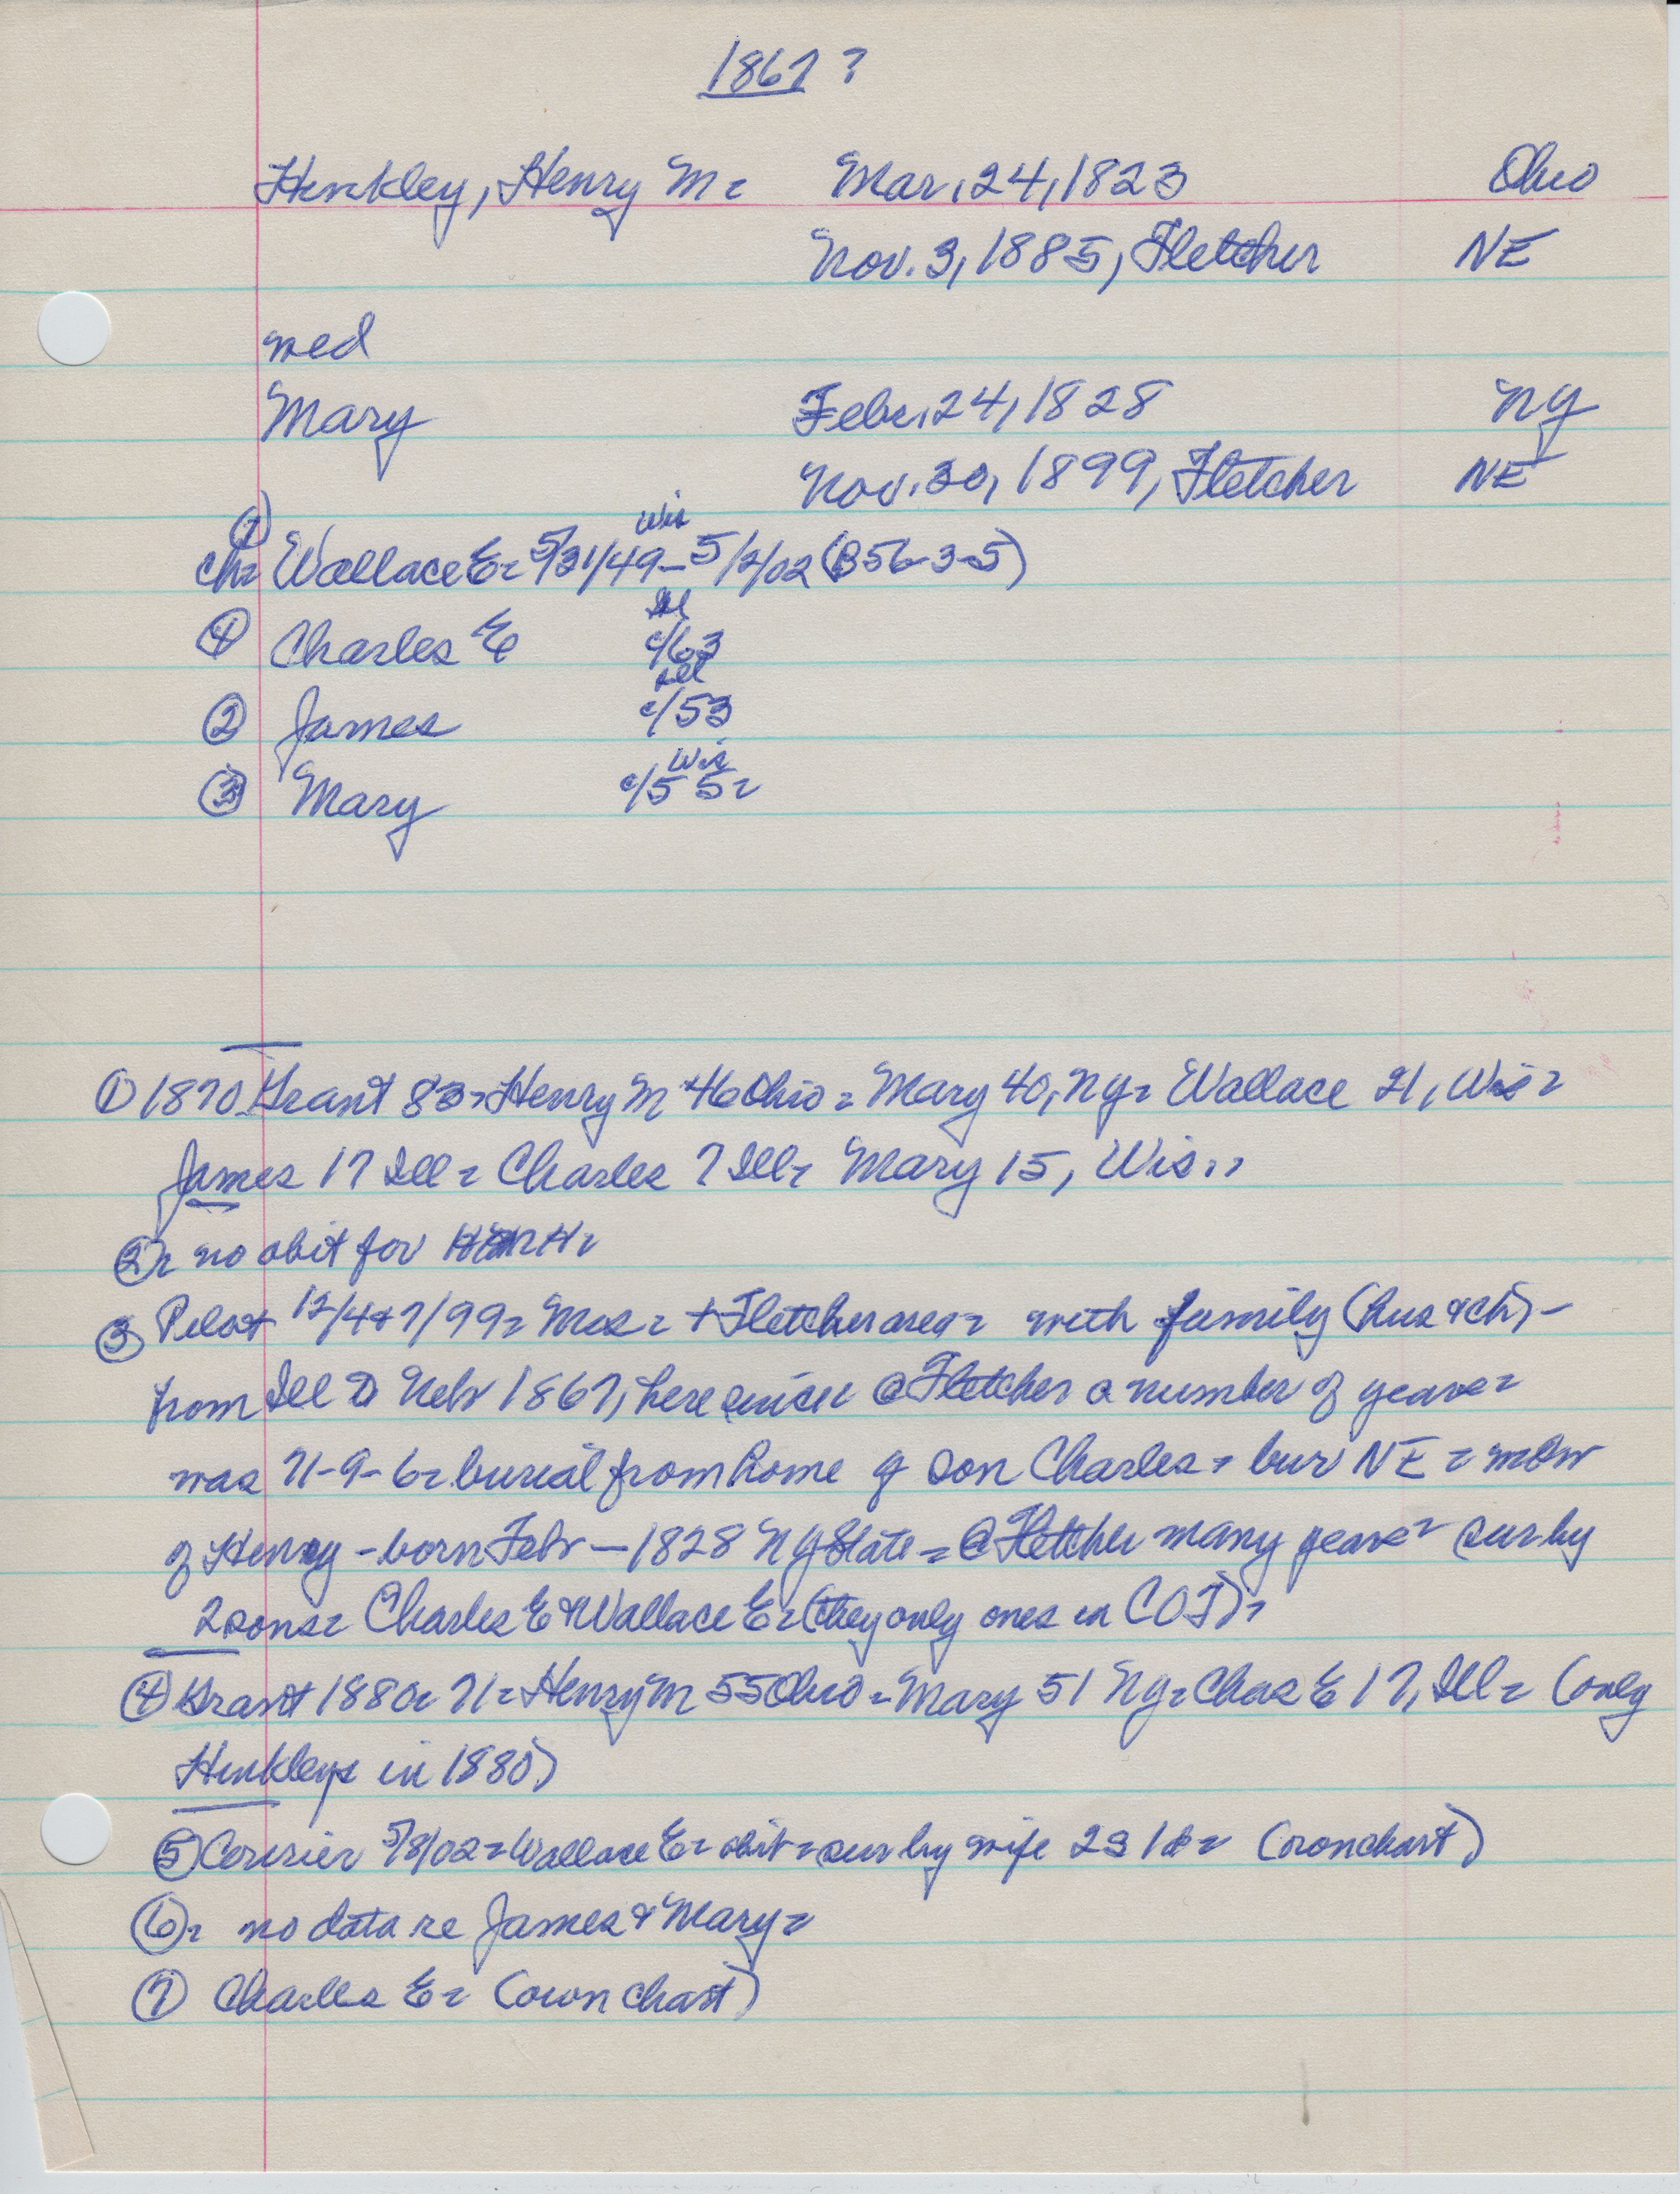 1867?
Hinkley, Henry M= Mar. 24, 1823 Ohio
Nov. 3, 1885, Fletcher NE
med
Mary Feb. 24, 1828 NY
Nov. 30, 1899, Fletcher NE
① Wis
ch= Wallace E= 5/31/49 - 5/2/02 (B56-3-5)
Ill
④ Charles E c/63
Ill
② James c/53
Wis
③ Mary c/55=
① 1870 Grant 83= Henry M 46 Ohio = Mary 40, NY= Wallace 21, Wis=
James 17 Ill= Charles 7 Ill= Mary 15, Wis..
②= no obit for HMH=
③ Pilot 12/4+7/99= Mrs= + Fletcher area= with family (hus & ch) -
from Ill to Nebr 1867, here since @ Fletcher a number of years=
was 71-9-6= burial from home of son Charles= bur NE = mom
of Henry - born Febr - 1828 NY State = @ Fletcher many years= sur by
2 sons= Charles E & Wallace E= (they only ones in COJ)=
④ Grant 1880= 71= Henry M 55 Ohio = Mary 51 NY= Chas E 17, Ill= (only
Hinkleys in 1880)
⑤ Courier 5/8/02= Wallace E= obit= sur by wife 2s 1d= (own chart)
⑥= no data re James & Mary=
⑦ Charles E= (own chart)